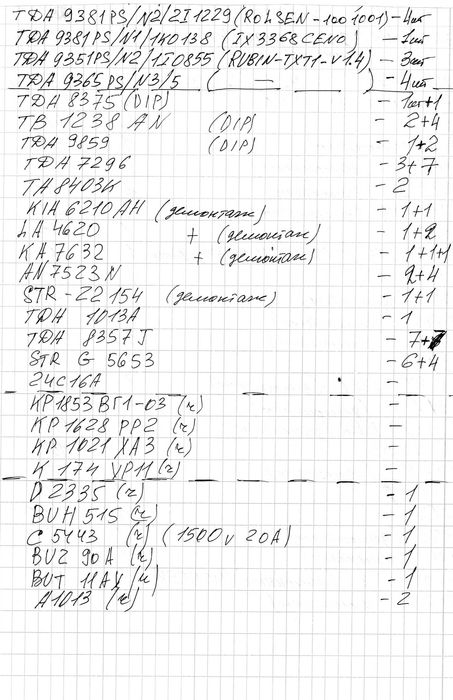 TDA 9381PS/N2/2I1229 (ROLSEN-1001001) - 4шт
TDA 9381PS/N1/1K0138 (IX3368CEN0) - 1шт
TDA 9351PS/N2/1I0855 (RUBIN-TXT1-V1.4) - 3шт
TDA 9365PS/N3/5 ( — ) - 4шт
TDA 8375 (DIP) - 1шт+1
TB 1238 AN (DIP) - 2+4
TDA 9859 (DIP) - 1+2
TDA 7296 - 3+7
TA 8403K - 2
KIA 6210 AH (демонтаж) - 1+1
LA 4620 + (демонтаж) - 1+2
KA 7632 + (демонтаж) - 1+1+1
AN 7523N - 2+4
STR-Z2154 (демонтаж) - 1+1
TDA 1013A - 1
TDA 8357J - 7+7
STR G 5653 - 6+4
24C16A -
КР1853ВГ1-03 (ч) -
КР 1628 РР2 (ч) -
КР 1021 ХА3 (ч) -
К 174 УР11 (ч) -
D 2335 (ч) - 1
BUH 515 (ч) - 1
C 5443 (ч) (1500v 20A) - 1
BUZ 90A (ч) - 1
BUT 11AX (ч) - 1
A1013 (ч) - 2